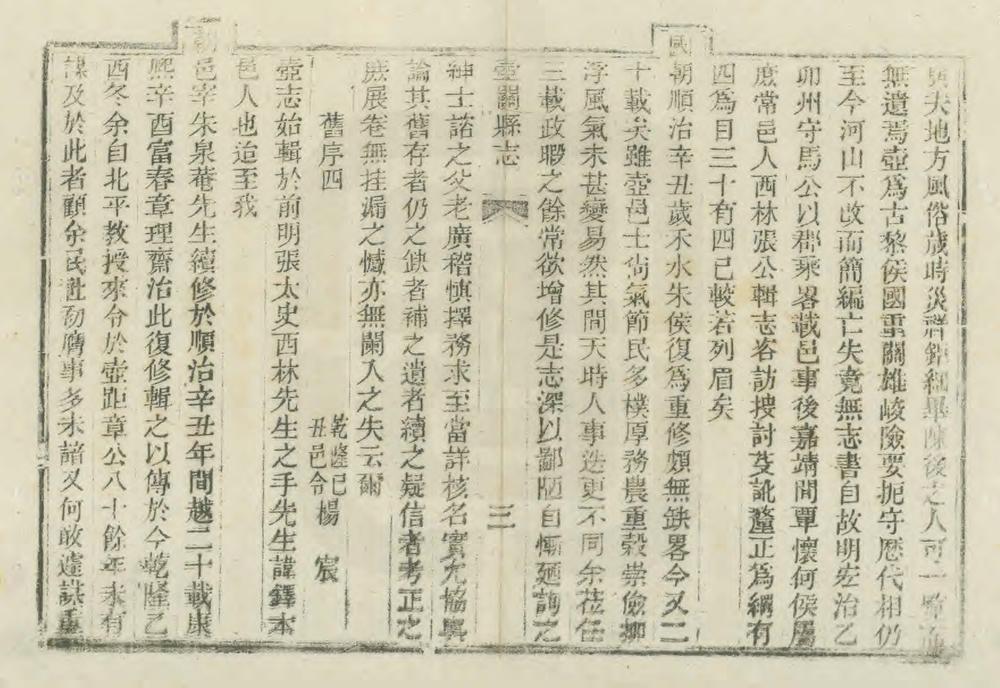 與夫地方風俗歲時災祥錯綜畢陳後之人可一覽而
無遺焉壺爲古黎侯國重關雄峻險要扼守歷代相仍
至今河山不改而簡編亡失竟無志書自故明宏治乙
卯州守馬公以郡乘畧載邑事後嘉靖間覃懷何侯屬
庶常邑人西林張公輯志咨訪搜討芟訛釐正爲綱有
四爲目三十有四已較若列眉矣
國朝順治辛丑歲禾水朱侯復爲重修頗無缺畧今又二
十載矣雖壺邑士尙氣節民多樸厚務農重穀崇儉抑
浮風氣未甚變易然其間天時人事迭更不同余莅任
三載政暇之餘常欲增修是志深以鄙陋自慚廼詢之
壺關縣志 三
紳士諮之父老廣稽慎擇務求至當詳核名實允協輿
論其舊存者仍之缺者補之遺者續之疑信者考正之
庶展卷無挂漏之憾亦無闌入之失云爾
舊序四 乾隆己丑邑令楊宸
壺志始輯於前明張太史西林先生之手先生諱鐸本
邑人也迨至我
朝邑宰朱泉菴先生續修於順治辛丑年間越二十載康
熙辛酉富春章理齋治此復修輯之以傳於今乾隆乙
酉冬余自北平教授來令於壺距章公八十餘年未有
謀及於此者顧余民社初膺事多未諳又何敢遽議重